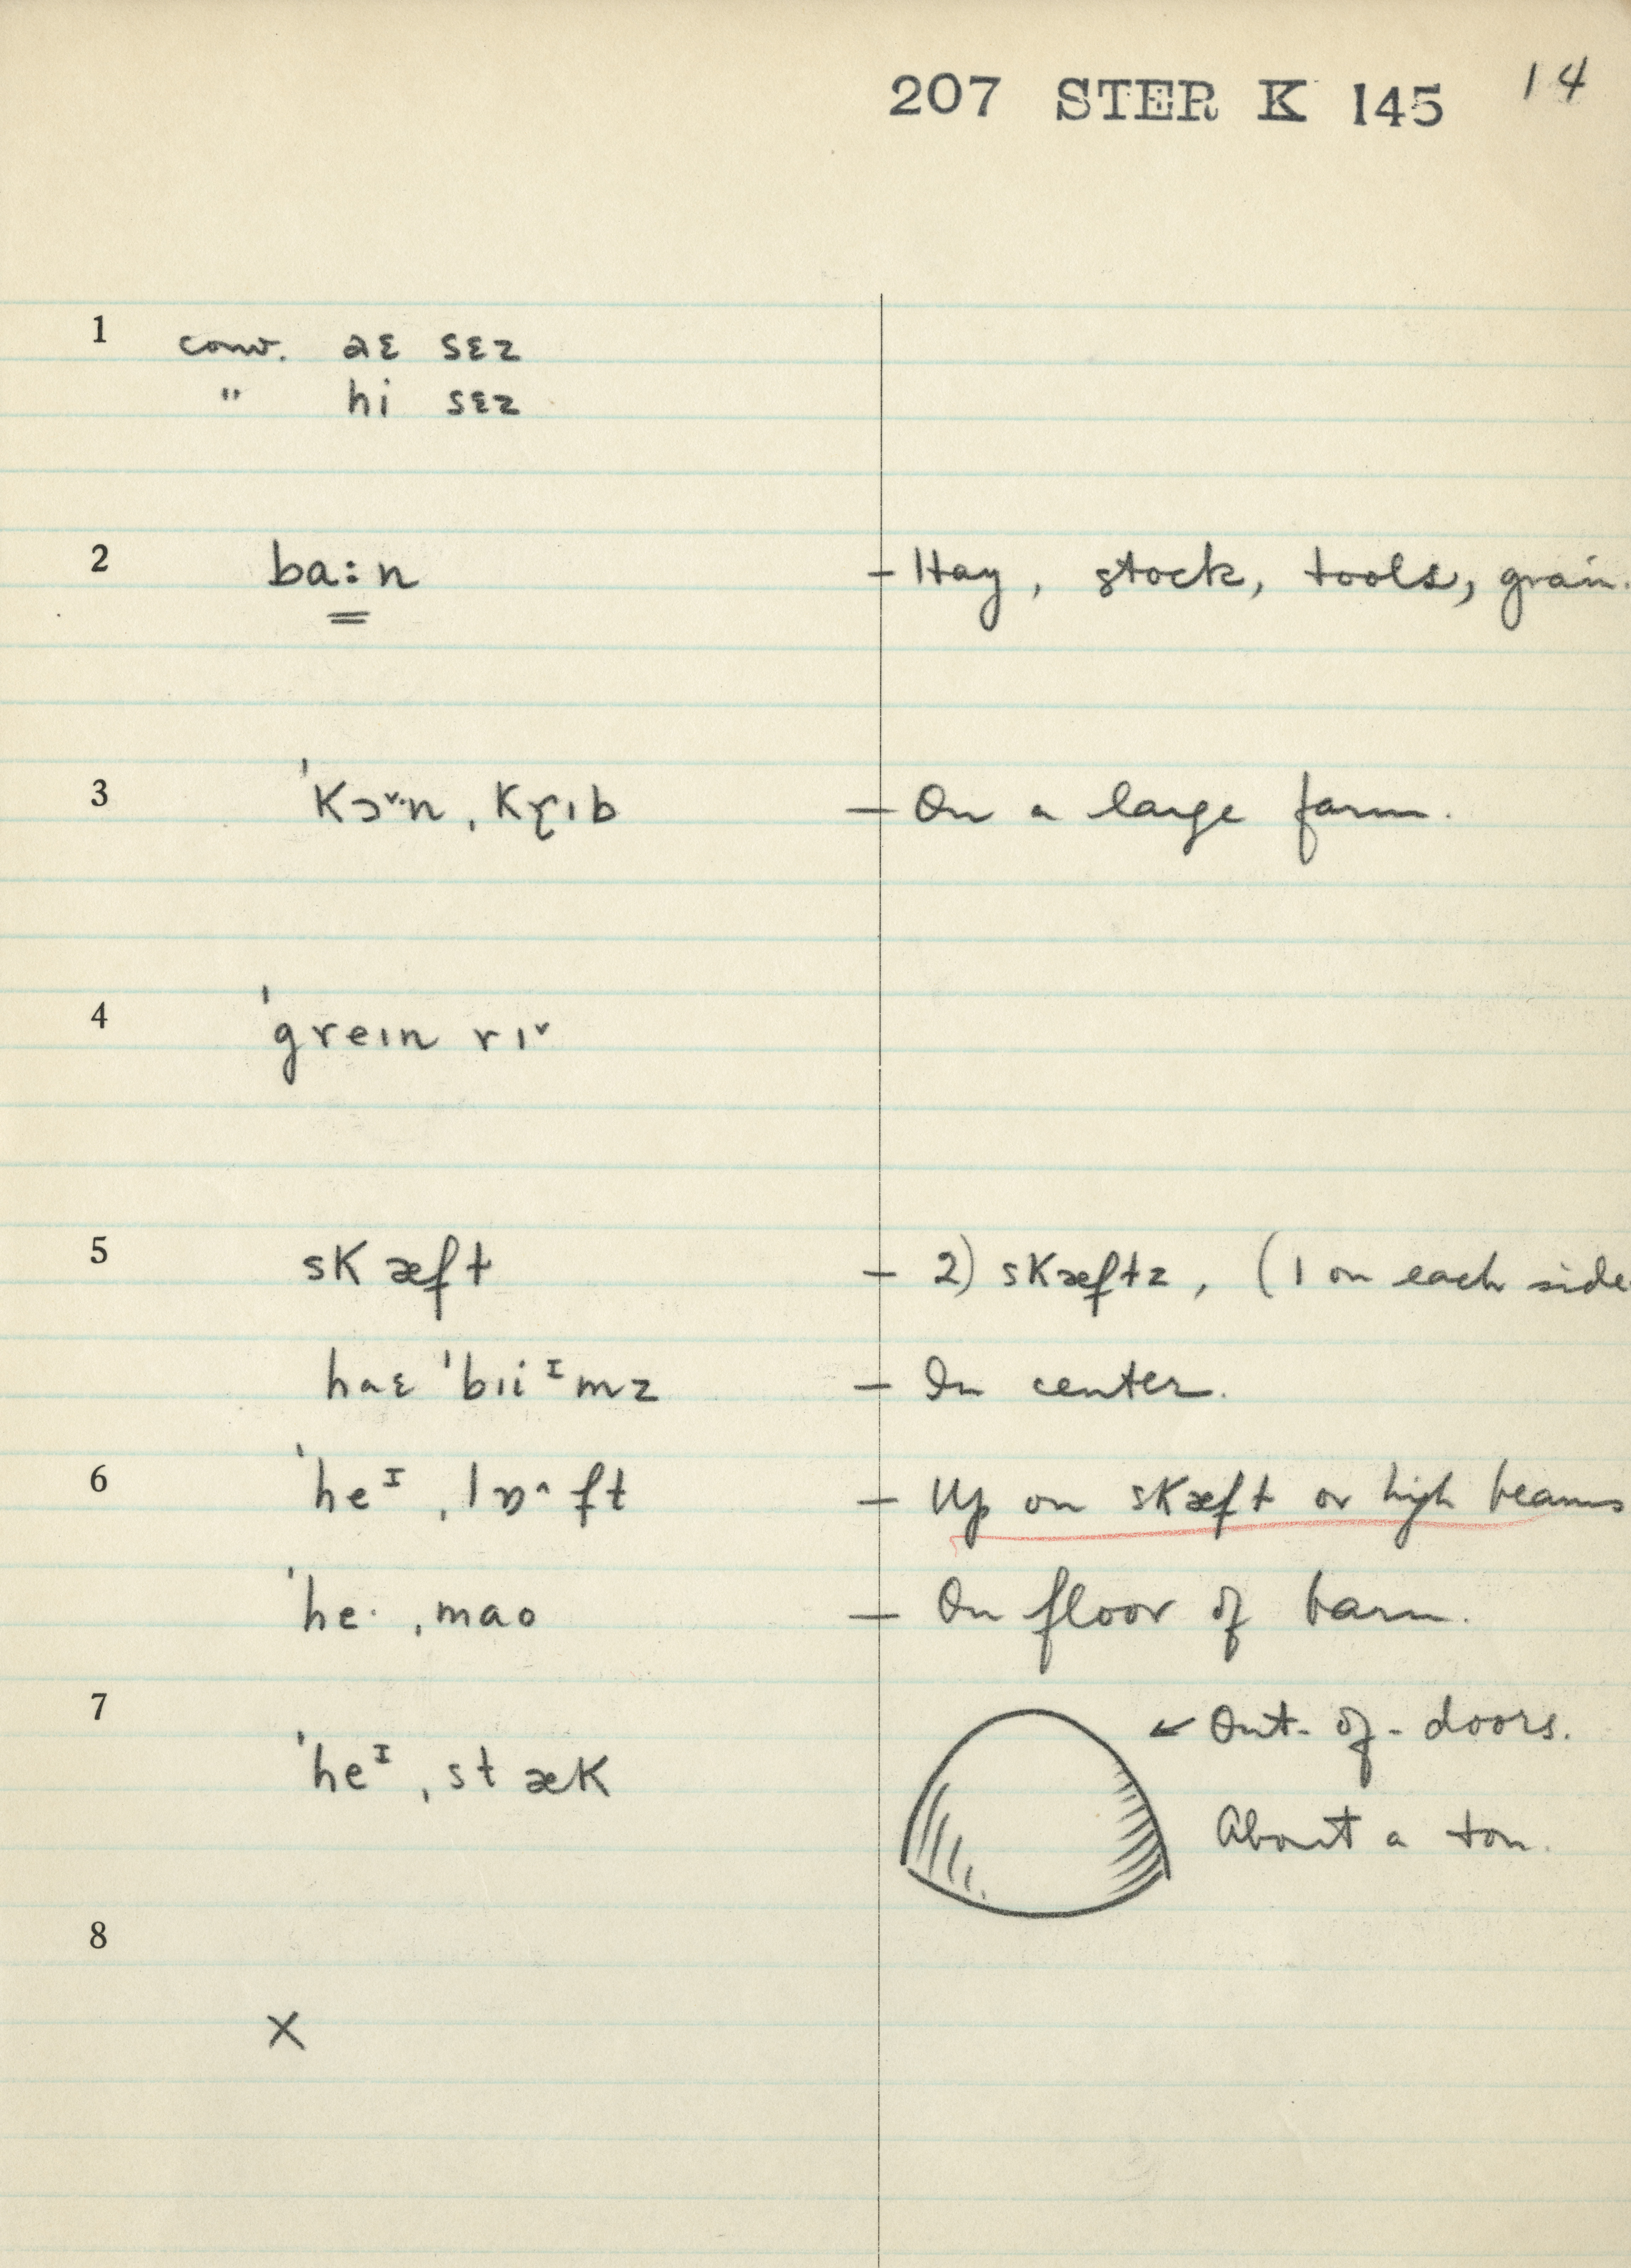 207 STER K 145 14
1 conv. aɛ sɛz
" hi sɛz
2 ba:n – Hay, stock, tools, grain.
3 ˈkɔˇ·n ˌkɽɪb – On a large farm.
4 ˈgreɪn rɪˇ
5 skæft – 2) skæfts, (1 on each side
haɛ ˈbɪiᶦmz – In center.
6 ˈheᶦ ˌlɒ^ft – Up on skæft or high beams
ˈhe· ˌmao – On floor of barn.
7 ← Out-of-doors.
ˈheᶦ ˌstæk About a ton.
8
X